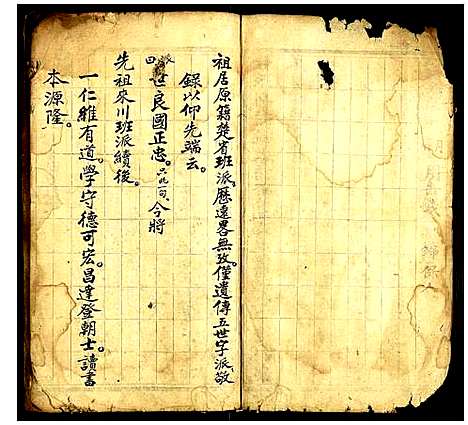 祖居原籍楚省班派。歷遠畧無攷。僅遺傳五世字派敬
録以仰先端云。
世良國正忠。只此一句。今將
先祖來川班派續後。
一仁維有道。學守德可宏。昌達登朝士。讀書
本源隆。